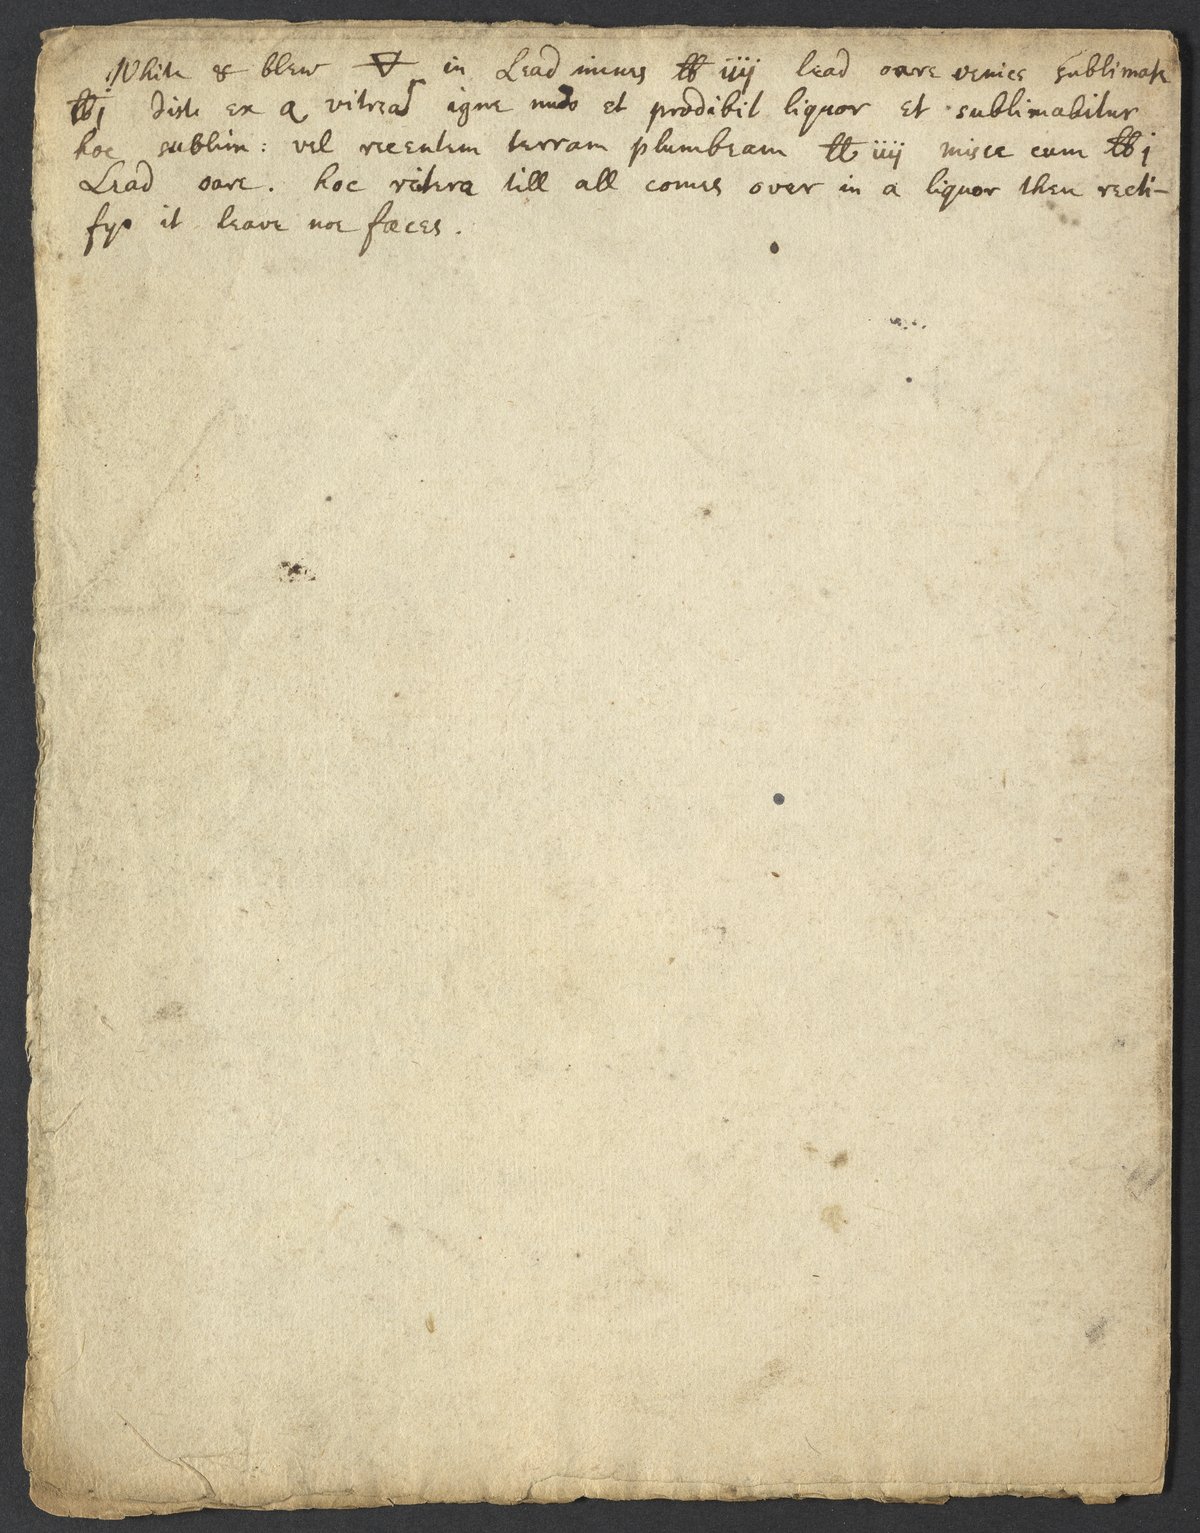 White & blew 🜃 in Lead mines ℔ iiij lead oare venice sublimate
℔j Dist ex a vitreat igne nudo et prodibit liquor et sublimabitur
hoc sublim: vel recentem terram plumbeam ℔ iiij misce cum ℔j
Lead oare. hoc ritera till all comes over in a liquor then recti-
fye it leave noe fæces.